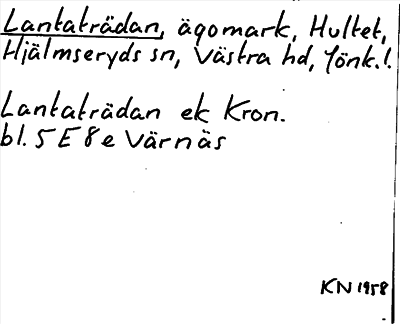 Lantaträdan, ägomark, Hultet,
Hjälmseryds sn, Västra hd, Jönk.l.
Lantaträdan ek Kron.
bl. 5 E 8 e Värnäs
KN 1958